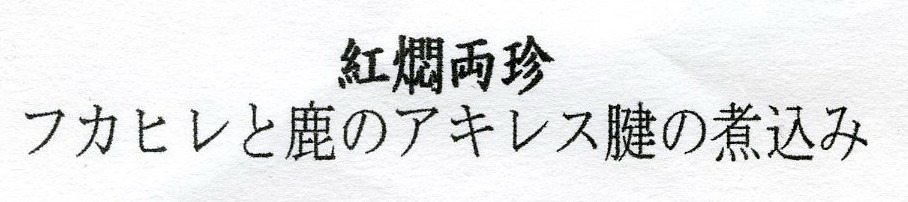 紅燜両珍
フカヒレと鹿のアキレス腱の煮込み